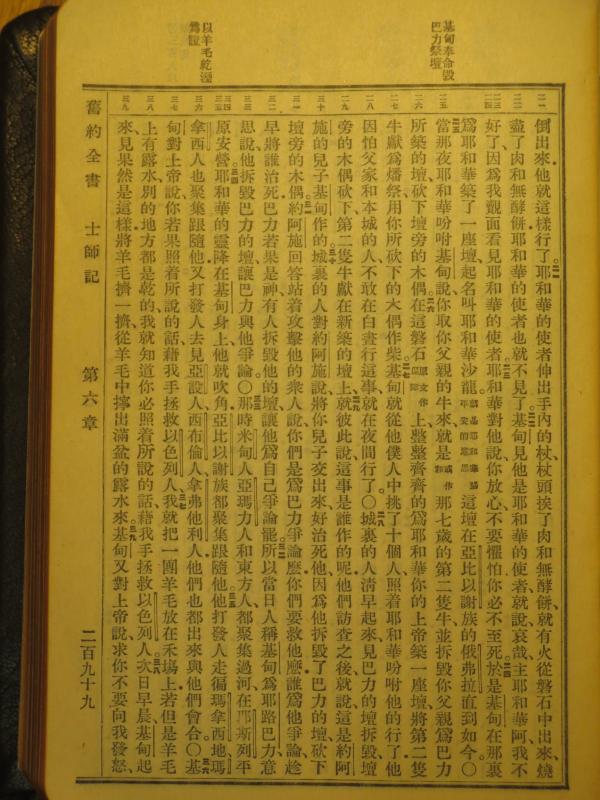 基甸奉命毀
巴力祭壇
以羊毛乾溼
爲證
倒出來他就這樣行了耶和華的使者伸出手內的杖杖頭挨了肉和無酵餅就有火從磐石中出來燒
盡了肉和無酵餅耶和華的使者也就不見了基甸見他是耶和華的使者就說哀哉主耶和華阿我不
好了因爲我覿面看見耶和華的使者耶和華對他說你放心不要懼怕你必不至死於是基甸在那裏
爲耶和華築了一座壇起名叫耶和華沙龍就是耶和華賜平安的意思這壇在亞比以謝族的俄弗拉直到如今〇
當那夜耶和華吩咐基甸說你取你父親的牛來就是或作和那七歲的第二隻牛並拆毀你父親爲巴力
所築的壇砍下壇旁的木偶在這磐石原文作保障上整整齊齊的爲耶和華你的上帝築一座壇將第二隻
牛獻爲燔祭用你所砍下的木偶作柴基甸就從他僕人中挑了十個人照着耶和華吩咐他的行了他
因怕父家和本城的人不敢在白晝行這事就在夜間行了〇城裏的人清早起來見巴力的壇拆毀壇
旁的木偶砍下第二隻牛獻在新築的壇上就彼此說這事是誰作的呢他們訪查之後就說這是約阿
施的兒子基甸作的城裏的人對約阿施說將你兒子交出來好治死他因爲他拆毀了巴力的壇砍下
壇旁的木偶約阿施回答站着攻擊他的衆人說你們是爲巴力爭論麽你們要救他麽誰爲他爭論趁
早將誰治死巴力若果是神有人拆毀他的壇讓他爲自己爭論罷所以當日人稱基甸爲耶路巴力意
思說他拆毀巴力的壇讓巴力與他爭論〇那時米甸人亞瑪力人和東方人都聚集過河在耶斯列平
原安營耶和華的靈降在基甸身上他就吹角亞比以謝族都聚集跟隨他他打發人走徧瑪拿西地瑪
拿西人也聚集跟隨他又打發人去見亞設人西布倫人拿弗他利人他們也都出來與他們會合〇基
甸對上帝說你若果照着所說的話藉我手拯救以色列人我就把一團羊毛放在禾場上若但是羊毛
上有露水別的地方都是乾的我就知道你必照着所說的話藉我手拯救以色列人次日早晨基甸起
來見果然是這樣將羊毛擠一擠從羊毛中擰出滿盆的露水來基甸又對上帝說求你不要向我發怒
舊約全書　士師記　第六章　二百九十九